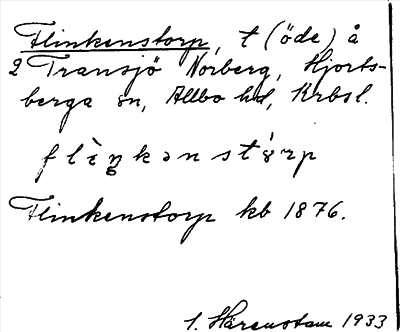 Flinkenstorp, t (öde) å
2 Transjö Norberg, Hjorts-
berga sn, Allbo hd, Krbsl.
flìŋkənstórp
Flinkenstorp kb 1876.
I. Härenstam 1933